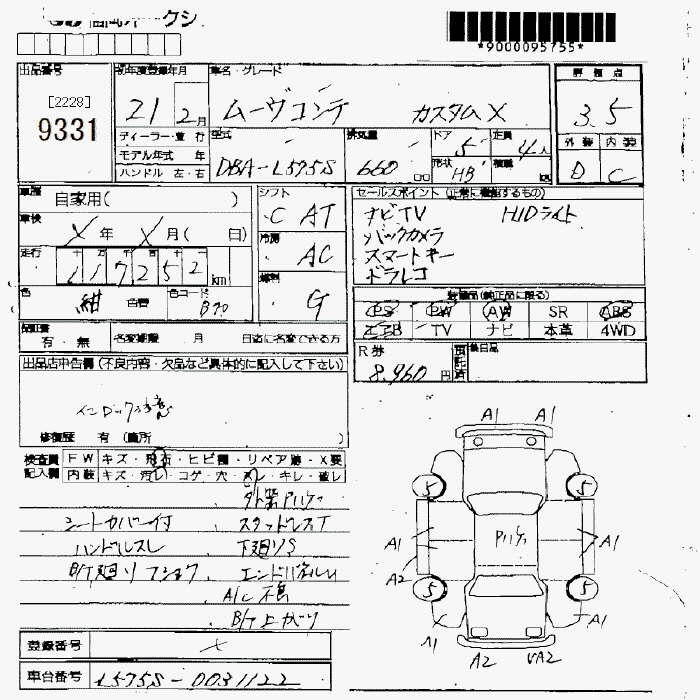 クシ
*9000095755*
出品番号
初年度登録年月
車名・グレード
評価点
[2228]
9331
21 2月
ムーヴコンテ カスタムX
3.5
ディーラー・並行
モデル年式 年
ハンドル 左・右
型式
DBA-L575S
排気量
660
cc
ドア
5
定員
4人
形状
HB
積載
kg
外装 内装
D C
車歴
自家用( )
シフト
C AT
セールスポイント (正常に機能するもの)
ナビTV HIDライト
バックカメラ
スマートキー
ドラレコ
車検
X年 X月( 日)
冷房
AC
走行
117252 km
燃料
G
色
紺
色替
色コード
B70
装備品(純正品に限る)
PS PW AW SR ABS
エアB TV ナビ 本革 4WD
保証書
有・無
名変期限 月 日迄に名変できる方
R券
8,960円
預託済
後日品
出品店申告欄 (不良内容・欠品など具体的に記入して下さい)
インロック注意
修復歴 有 (箇所 )
検査員
記入欄
FW キズ・飛石・ヒビ割・リペア跡・X要
内装 キズ・汚レ・コゲ・穴・スレ・キレ・破レ
シートカバー付 スタッドレスT
ハンドルスレ 下廻りS
A/C不良
A1 A1
5 5
A1 Pハゲ A1
A2
5 5
A1 A1
A2 A2
登録番号 X
車台番号 L575S-0031122